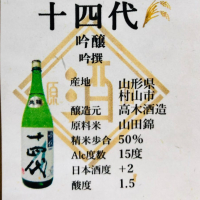 十四代
吟醸
吟撰
産地 山形県
村山市
醸造元 高木酒造
原料米 山田錦
精米歩合 50%
Alc度数 15度
日本酒度 +2
酸度 1.5
十四代